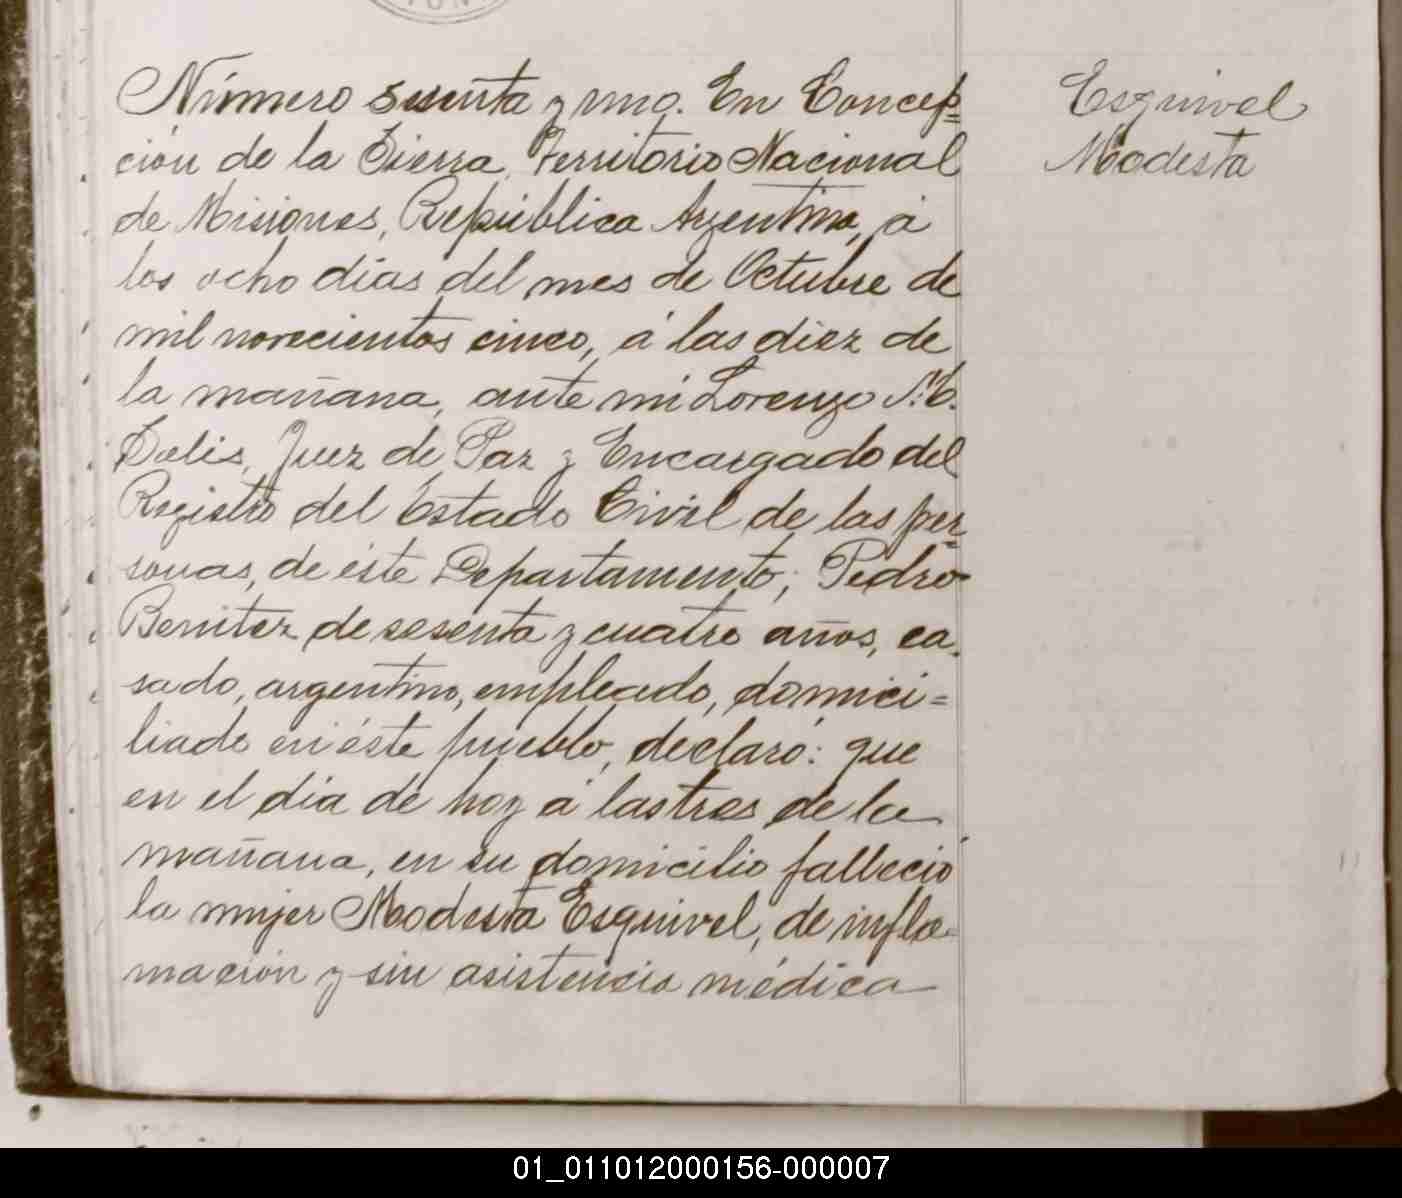 Número sesenta y uno. En Concep=
ción de la Sierra, Territorio Nacional
de Misiones, República Argentina, á
los ocho días del mes de Octubre de
mil novecientos cinco, á las diez de
la mañana, ante mi Lorenzo M.
Juez de Paz y Encargado del
Registro del Estado Civil de las per=
sonas, de éste Departamento; Pedro
Benitez de sesenta y cuatro años, ca-
sado, argentino, empleado, domici=
liado en éste pueblo, declaró: que
en el dia de hoy á las tres de la
mañana, en su domicilio falleció
la mujer Modesta Esquivel, de infla-
mación y sin asistencia médica
Esquivel
Modesta
01_011012000156-000007